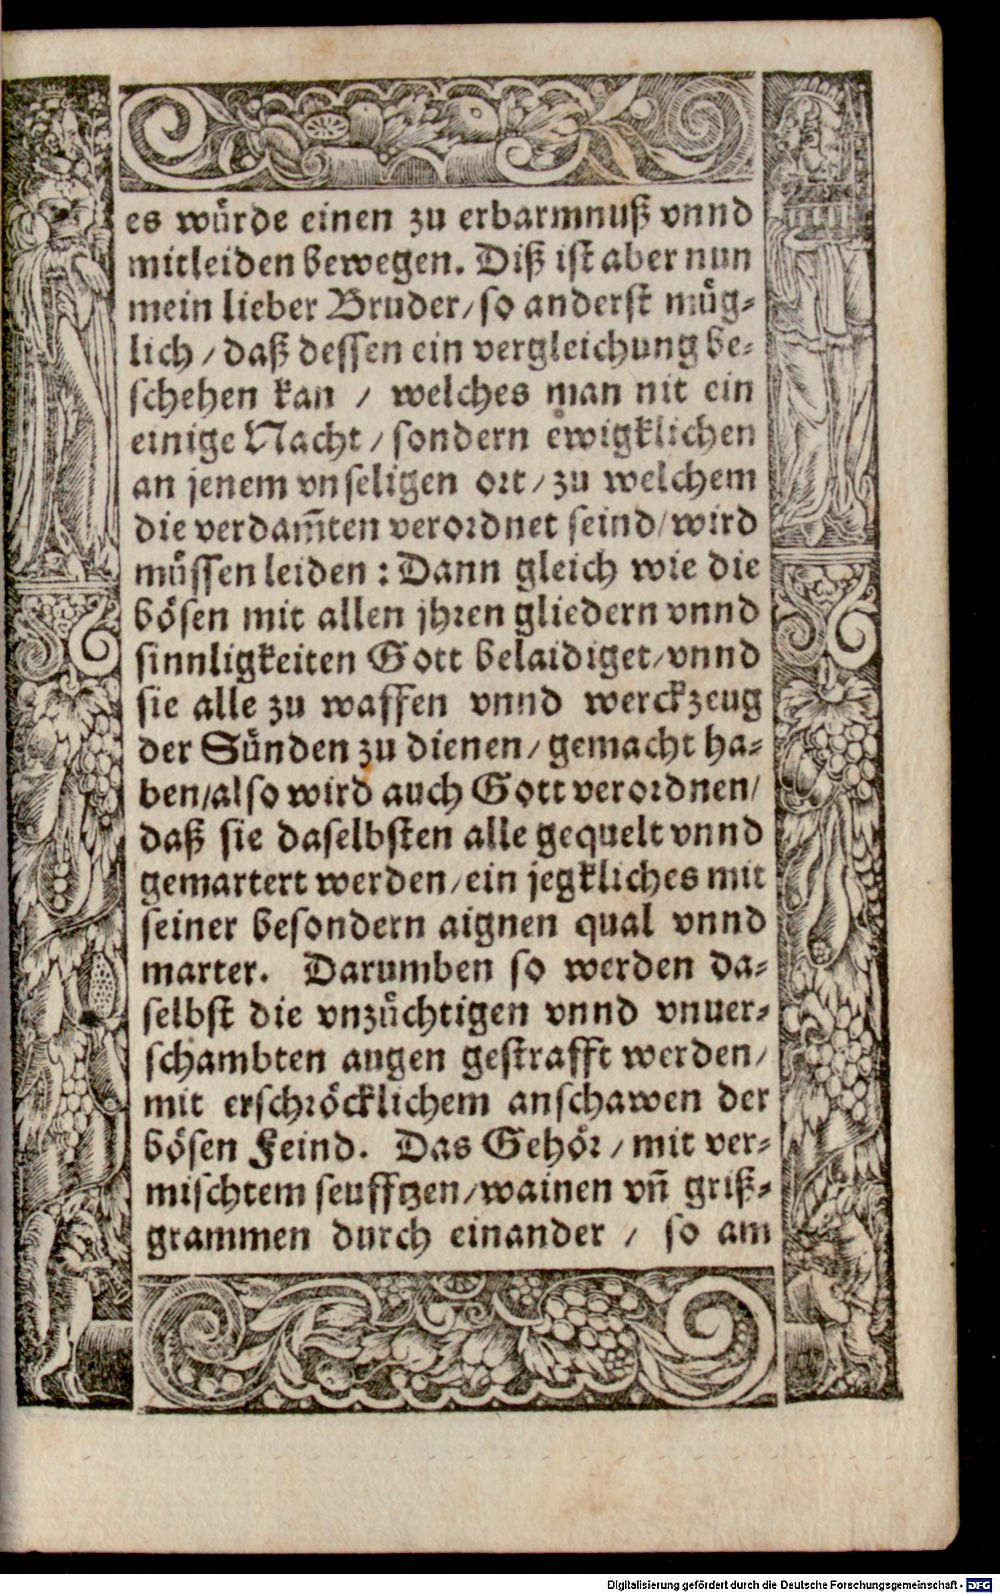 es wuͤrde einen zu erbarmnuß vnnd
mitleiden bewegen. Diß ist aber nun
mein lieber Bruder/ so anderst muͤg-
lich / daß dessen ein vergleichung be-
schehen kan / welches man nit ein
einige Nacht / sondern ewigklichen
an jenem vnseligen ort / zu welchem
die verdam̃ten verordnet seind/ wird
muͤssen leiden : Dann gleich wie die
boͤsen mit allen jhren gliedern vnnd
sinnligkeiten Gott belaidiget/ vnnd
sie alle zu waffen vnnd werckzeug
der Suͤnden zu dienen / gemacht ha-
ben/also wird auch Gott verordnen/
daß sie daselbsten alle gequelt vnnd
gemartert werden / ein jegkliches mit
seiner besondern aignen qual vnnd
marter. Darumben so werden da-
selbst die vnzuͤchtigen vnnd vnuer-
schambten augen gestrafft werden/
mit erschroͤcklichem anschawen der
boͤsen Feind. Das Gehoͤr / mit ver-
mischtem seufftzen / wainen vñ griß-
grammen durch einander / so am
Digitalisierung gefördert durch die Deutsche Forschungsgemeinschaft - DFG